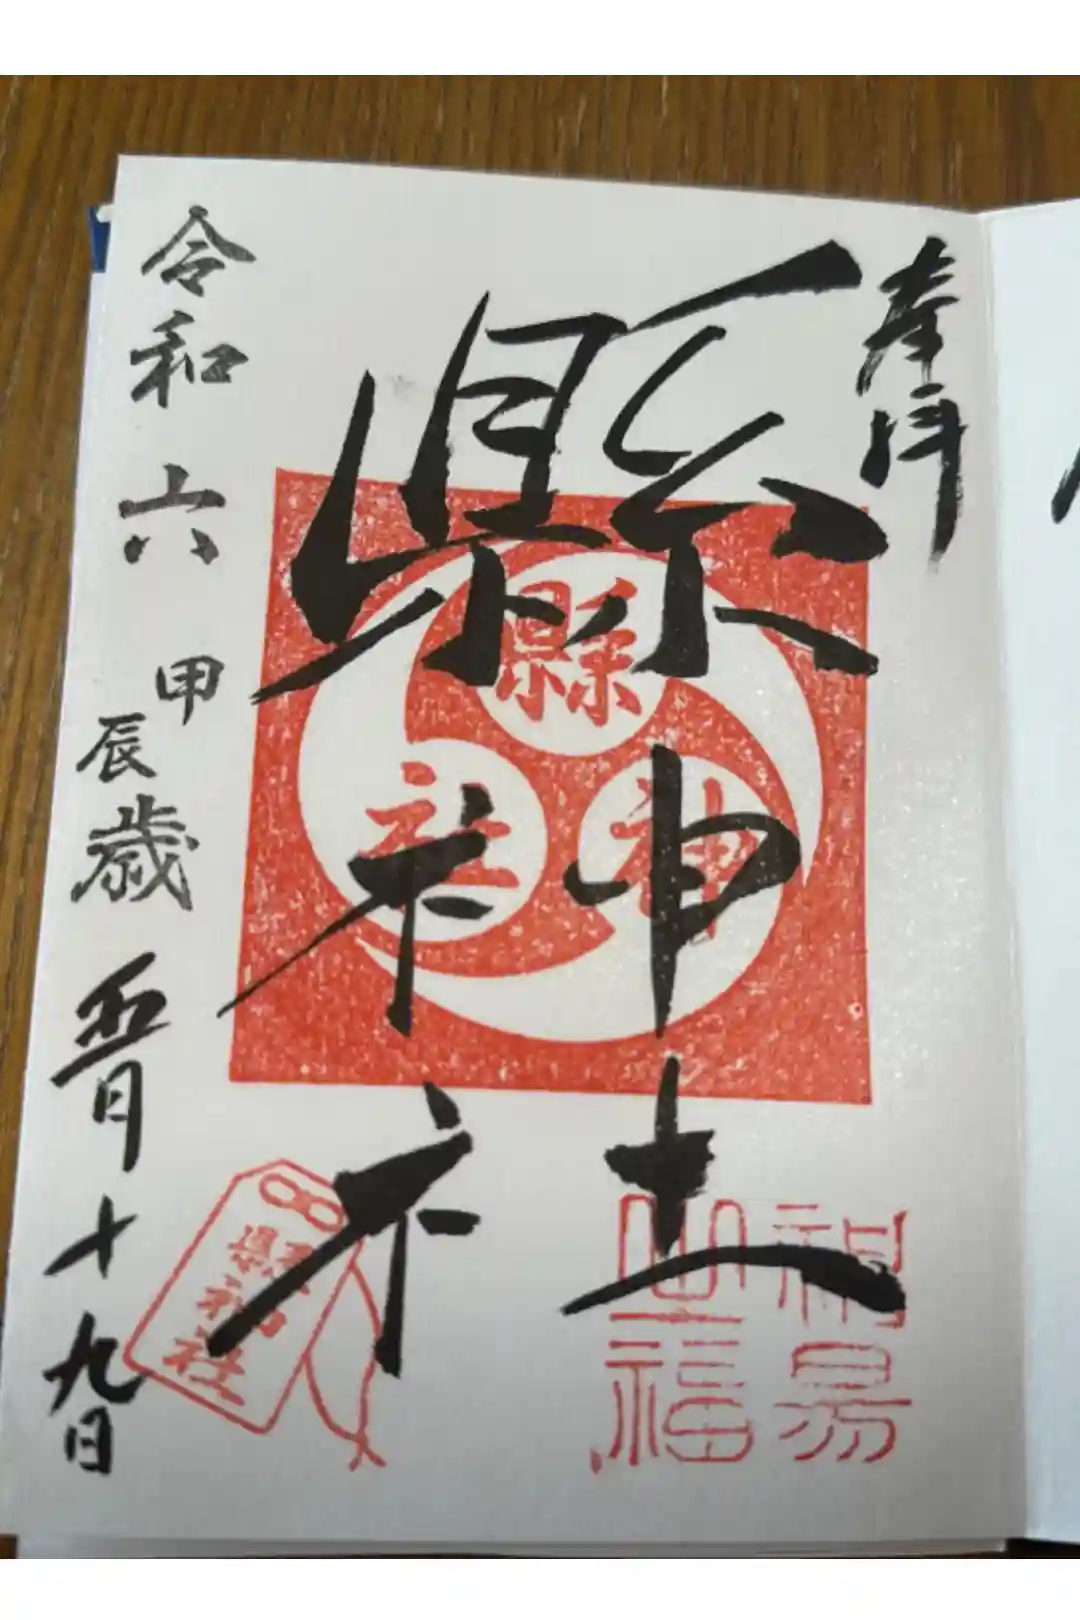 奉拝
縣神社
縣神社
神易
之福
縣神社
令和六甲辰歳五月十九日